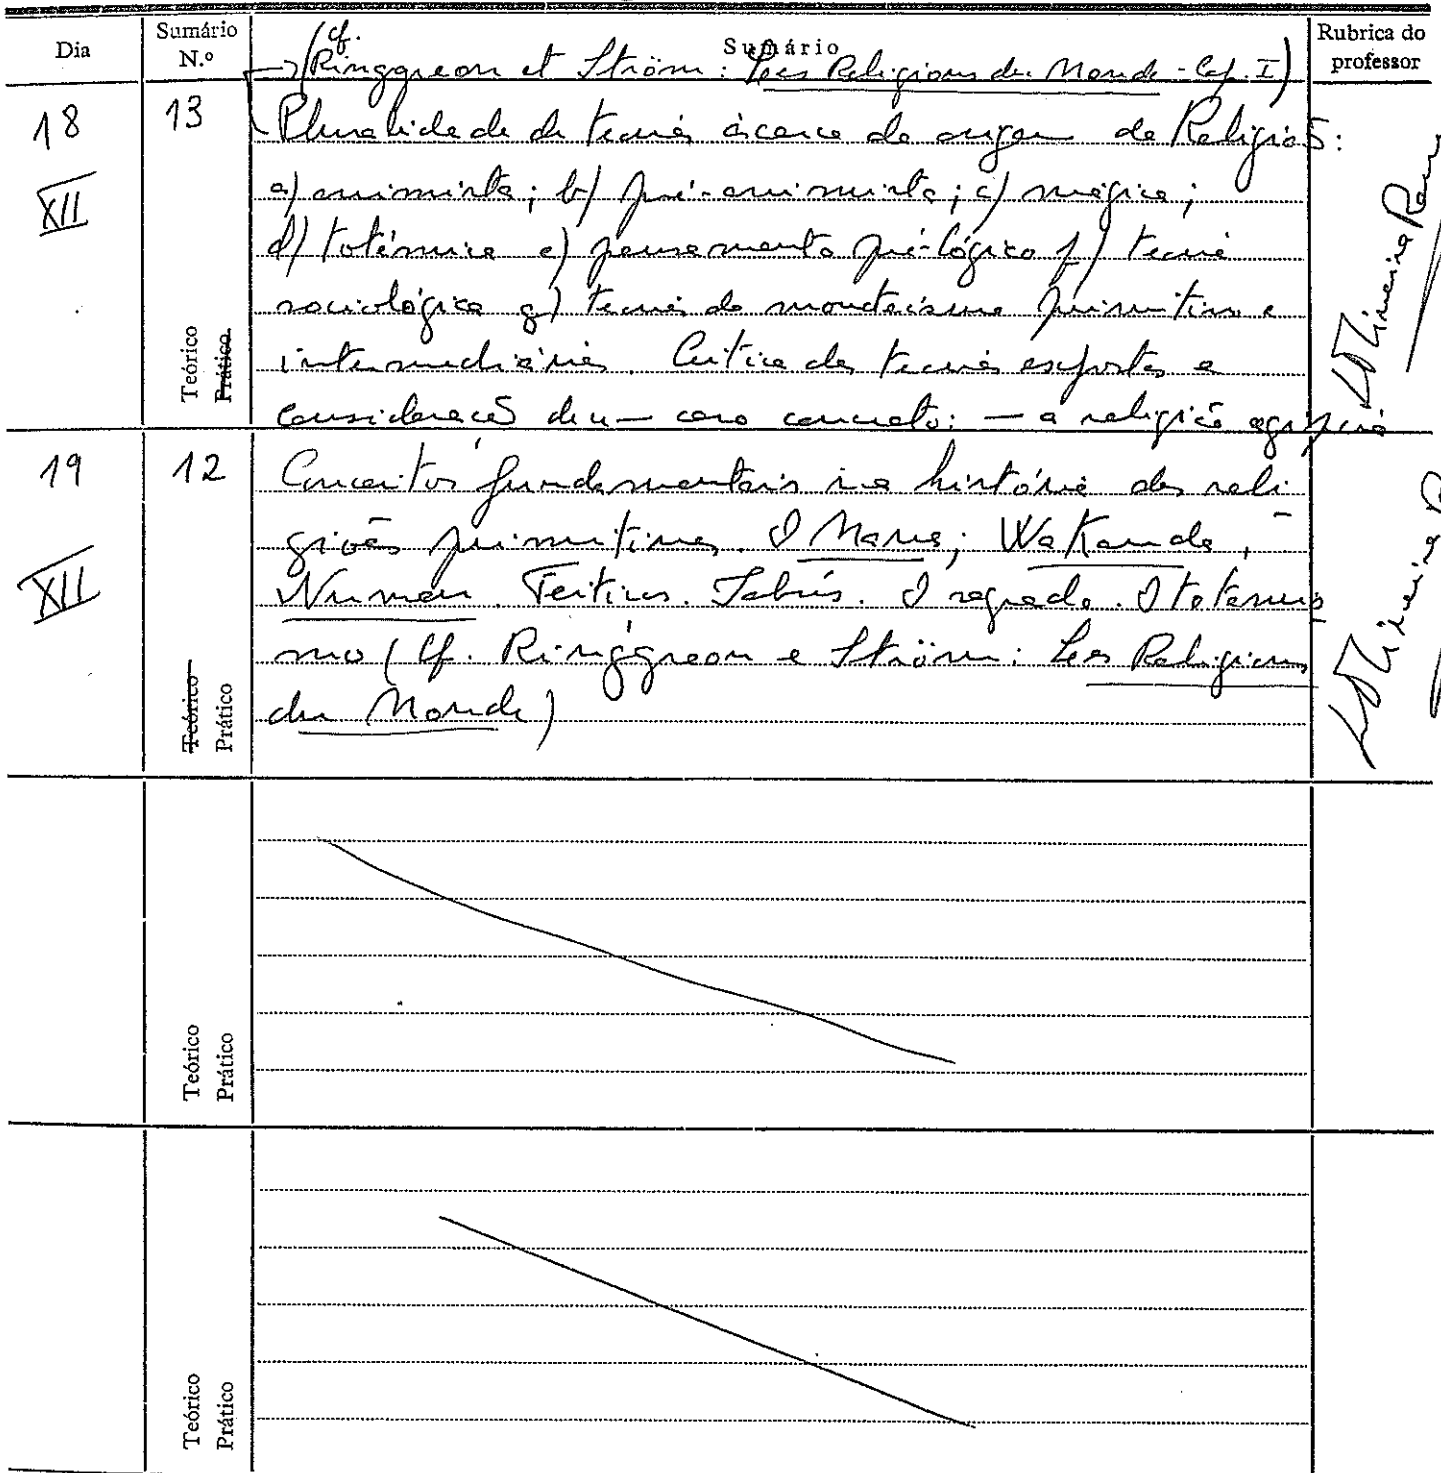 Dia
Sumário N.º
Sumário
Rubrica do professor
(cf. Ringgreon et Ström: Les Religions du Monde - Cap. I)
18
XII
13
Teórico
Prático
Pluralidade de teorias àcerca da origem da Religião:
a) animista; b) pré-animista; c) mágica;
d) totémica e) pensamento pré-lógico f) teoria
sociológica g) teorias do monoteísmo primitivo e
intermediárias. Crítica das teorias expostas e
consideração de um caso concreto: — a religião egípcia
19
XII
12
Teórico
Prático
Conceitos fundamentais na história das reli-
giões primitivas. O Mana; Wakanda,
Numen. Feitiços. Tabús. O sagrado. O totemis-
mo (Cf. Ringgreon e Ström: Les Religions
du Monde)
Teórico
Prático
Teórico
Prático